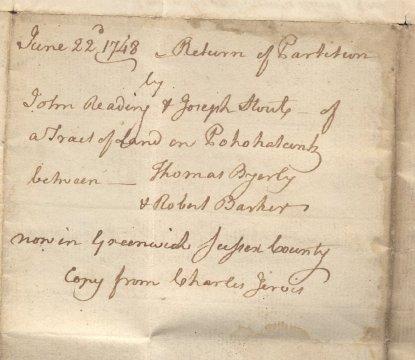 June 22d 1748 - Return of Partition
by
John Reading & Joseph Stout - of
a Tract of Land on Pohohatcunk
between - Thomas Byerly
& Robert Barker
now in Greenwich Sussex County
Copy from Charles Jervis